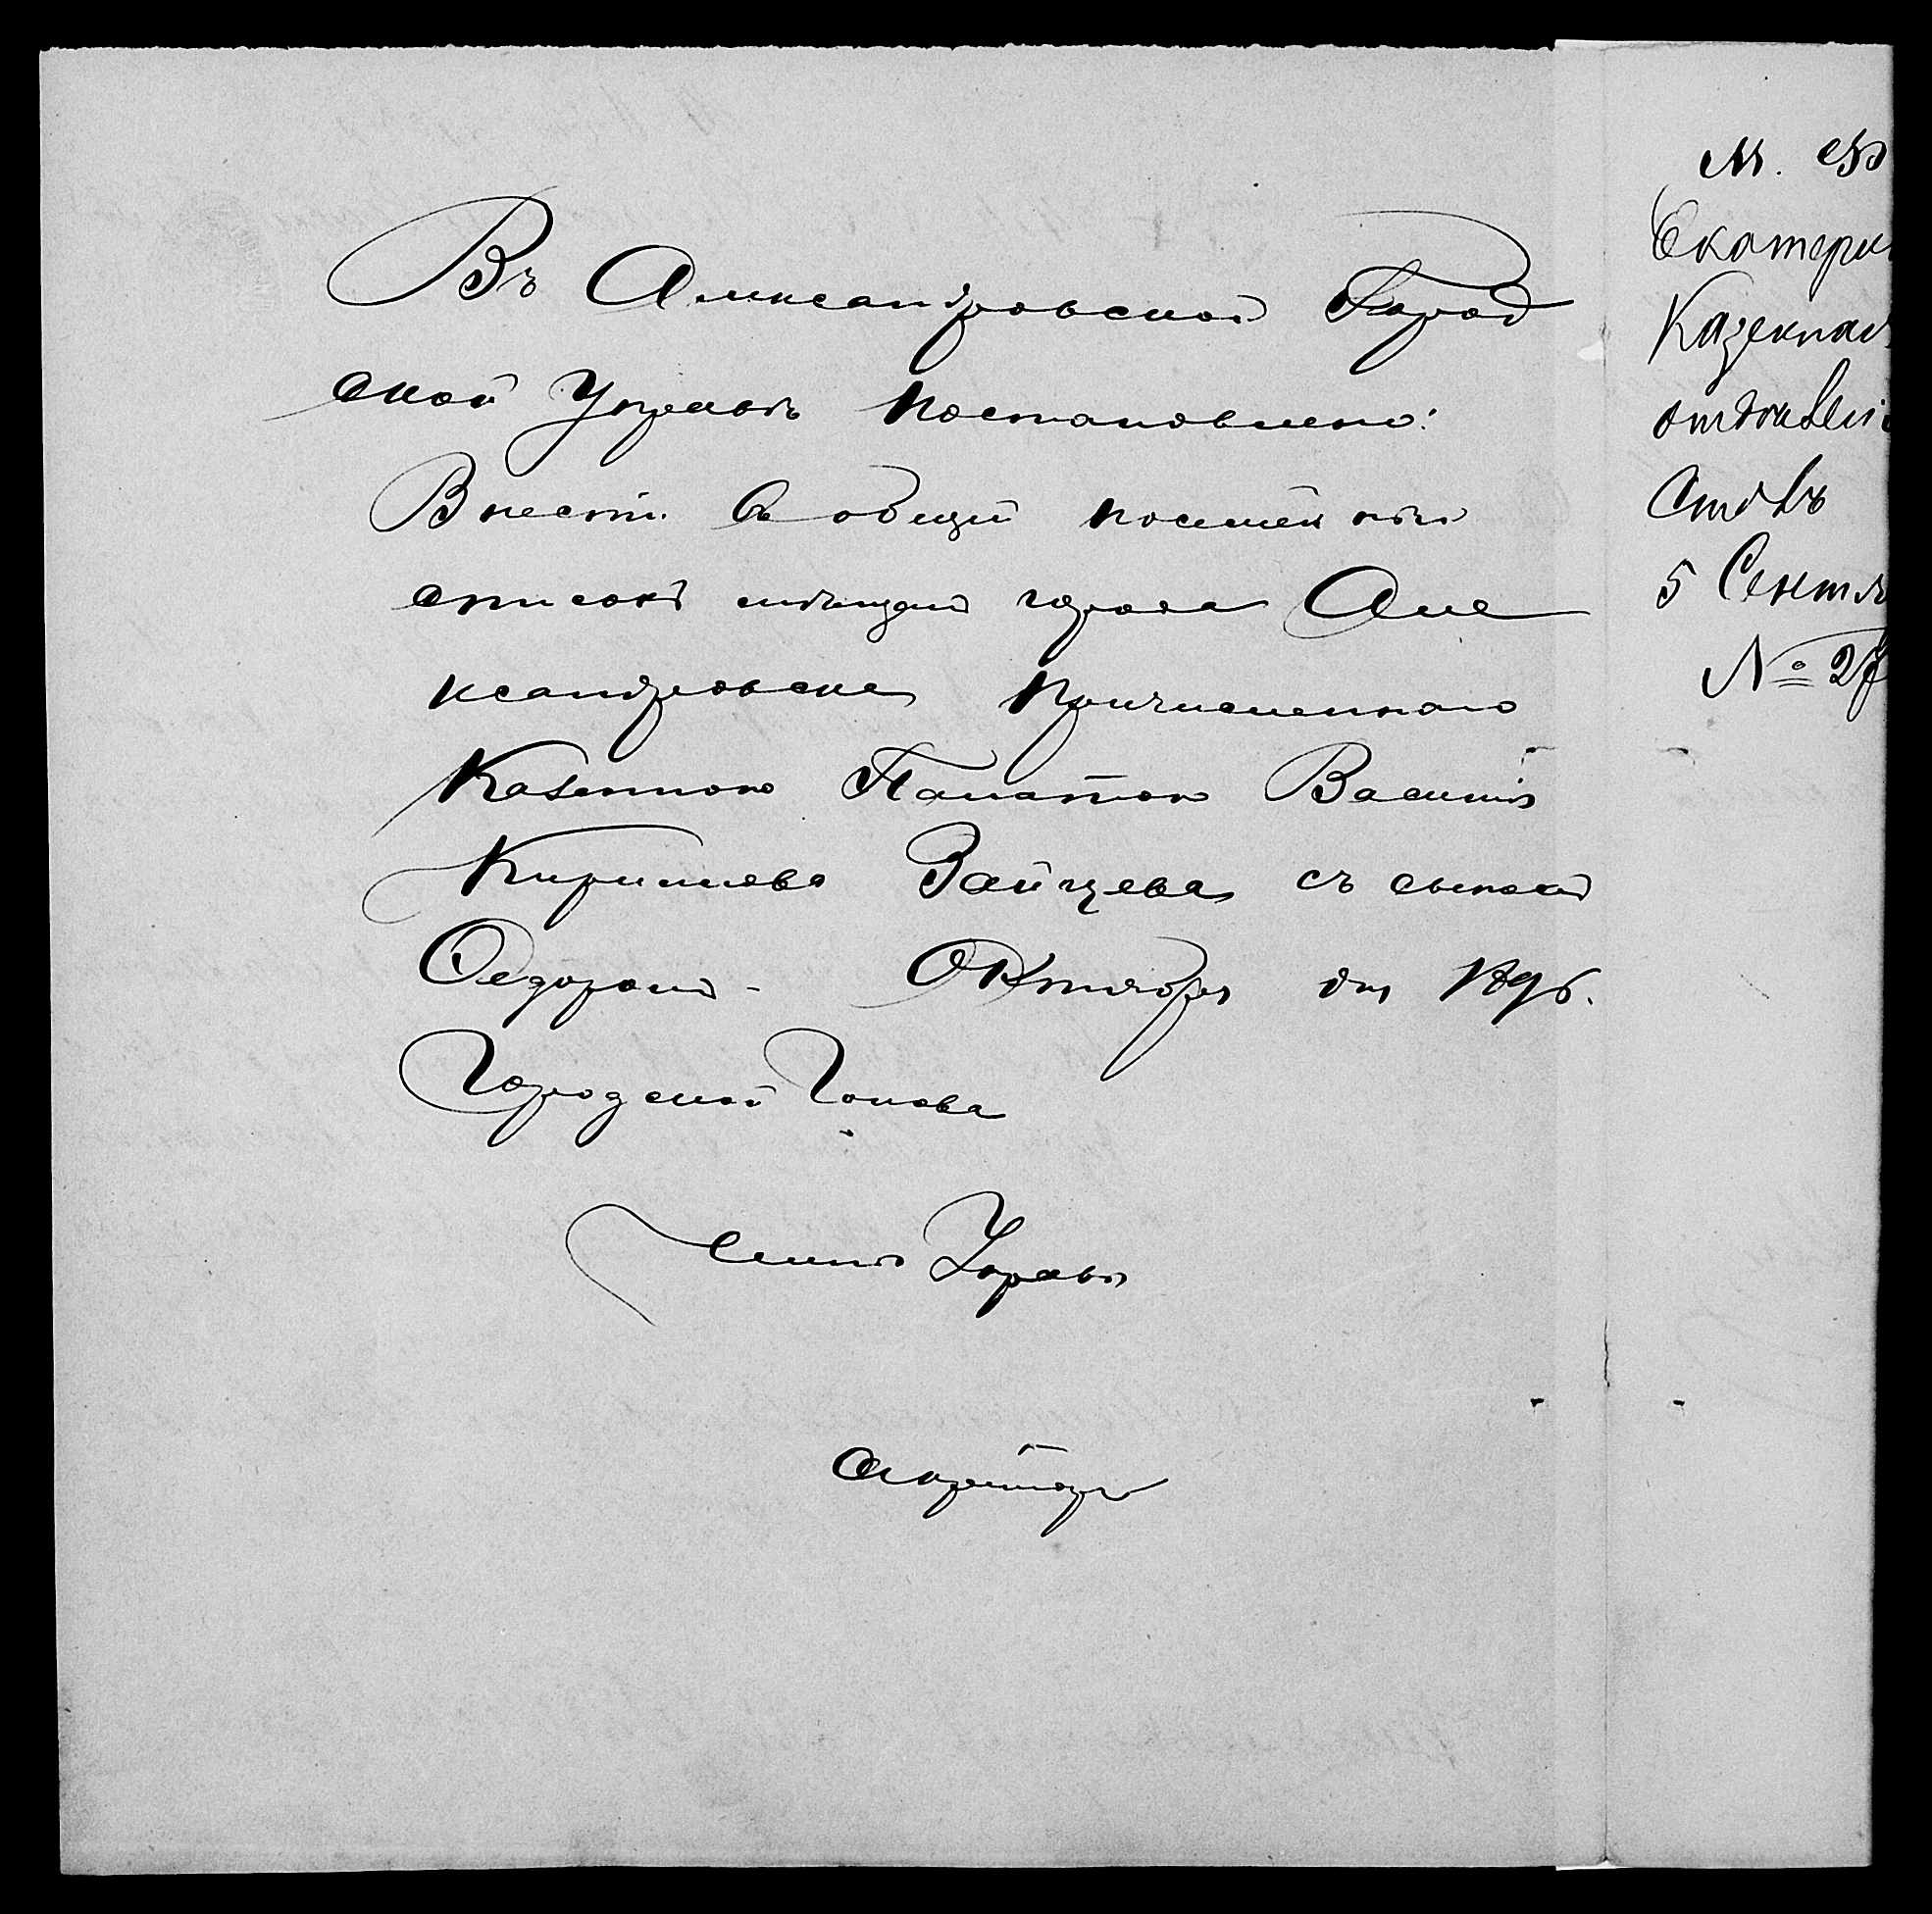 Въ Александровской Город
ской Управѣ постановлено:
Внести въ общій посемейный
списокъ мѣщанъ города Але
ксандровска причисленнаго
Казенною Палатою Василія
Кирилова Зайцева съ сыномъ
Федоромъ - Октября дня 1896.
Городской Голова
Члены Управы
Секретарь
М. Ф
Екатери
Казенная
отдѣленіе
Столъ
5 Сентя
№ 27